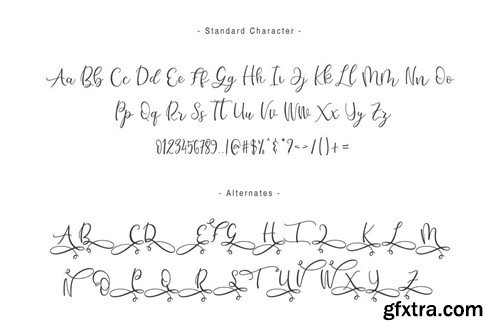 - Standard Character -
Aa Bb Cc Dd Ee Ff Gg Hh Ii Jj Kk Ll Mm Nn Oo
Pp Qq Rr Ss Tt Uu Vv Ww Xx Yy Zz
0123456789..!@#$%^&*?<>/()+=
- Alternates -
A B C D E F G H I J K L M
N O P Q R S T U V W X Y Z
gfxtra.com